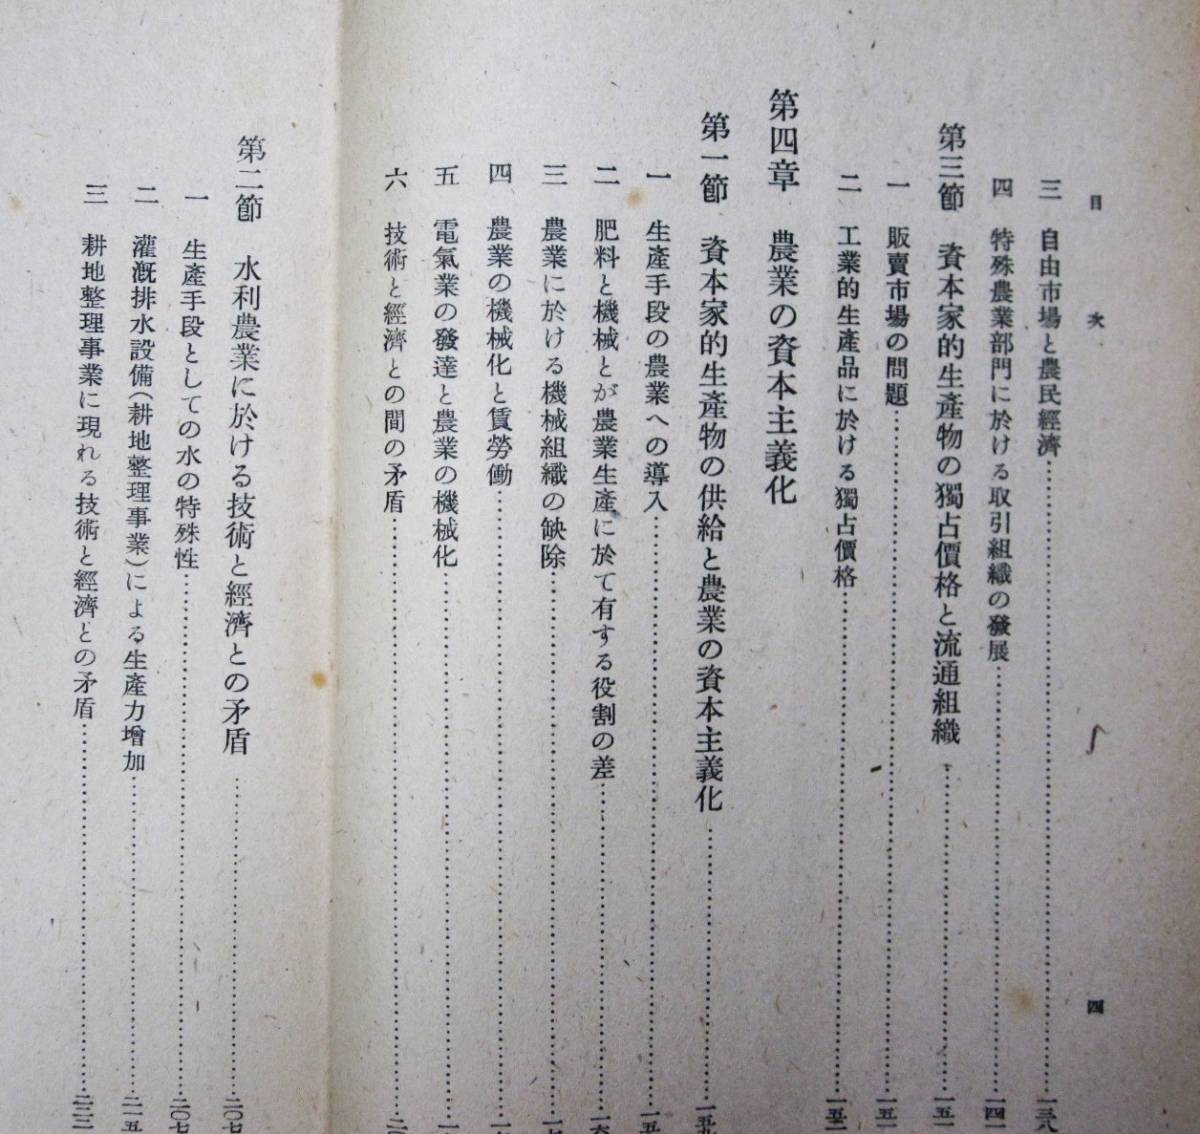 目次 四
三 自由市場と農民經濟……一三八
四 特殊農業部門に於ける取引組織の發展……一四
第三節 資本家的生產物の獨占價格と流通組織……一五
一 販賣市場の問題……一五
二 工業的生產品に於ける獨占價格……一五
第四章 農業の資本主義化
第一節 資本家的生產物の供給と農業の資本主義化……一五
一 生產手段の農業への導入……一五
二 肥料と機械とが農業生產に於て有する役割の差……一六
三 農業に於ける機械組織の缺除……一
四 農業の機械化と賃勞働……一
五 電氣業の發達と農業の機械化……一
六 技術と經濟との間の矛盾……二
第二節 水利農業に於ける技術と經濟との矛盾……二〇七
一 生產手段としての水の特殊性……二〇七
二 灌漑排水設備(耕地整理事業)による生產力增加……二一五
三 耕地整理事業に現れる技術と經濟との矛盾……二三